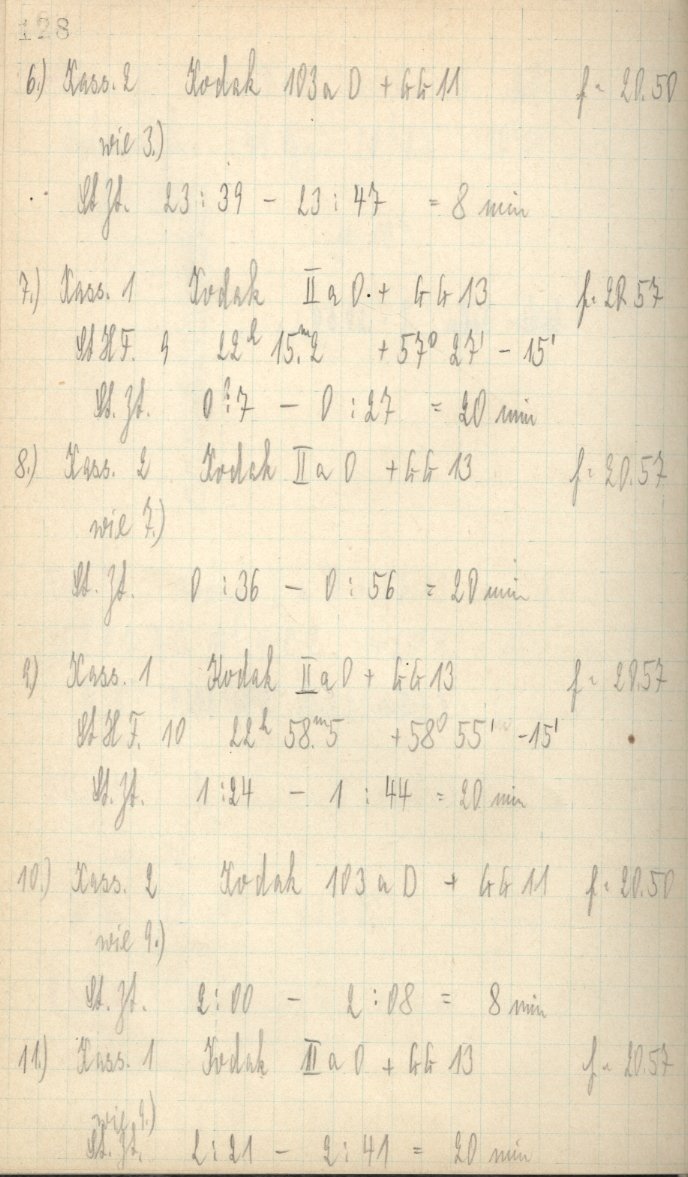 128
6.) Kass. 2 Kodak 103 a D + GG 11 f = 20.50
wie 3.)
St. Zt. 23:39 – 23:47 = 8 min
7.) Kass. 1 Kodak II a O + GG 13 f = 20.57
St H F. 9 22h 15.m2 +57° 27' – 15'
St. Zt. 0:7 – 0:27 = 20 min
8.) Kass. 2 Kodak II a O + GG 13 f = 20.57
wie 7.)
St. Zt. 0:36 – 0:56 = 20 min
9.) Kass. 1 Kodak II a O + GG 13 f = 20.57
St H F. 10 22h 58.m5 +58° 55' -15'
St. Zt. 1:24 – 1:44 = 20 min
10.) Kass. 2 Kodak 103 a D + GG 11 f = 20.50
wie 9.)
St. Zt. 2:00 – 2:08 = 8 min
11.) Kass. 1 Kodak II a O + GG 13 f = 20.57
wie 9.)
St. Zt. 2:21 – 2:41 = 20 min